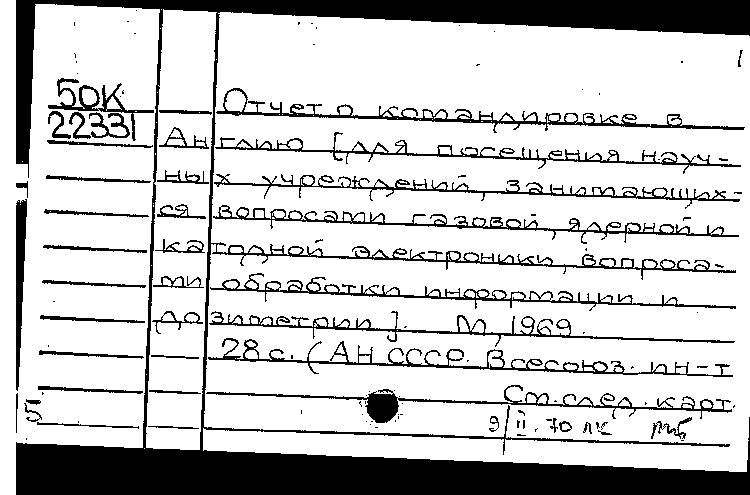 1
50К
22331
Отчет о командировке в
Англию [для посещения науч-
ных учреждений, занимающих-
ся вопросами газовой, ядерной и
катодной электроники, вопроса-
ми обработки информации и
дозиметрии]. М, 1969.
28 с. (АН СССР. Всесоюз. ин-т
См. след. карт.
5
9/II. 70 лк